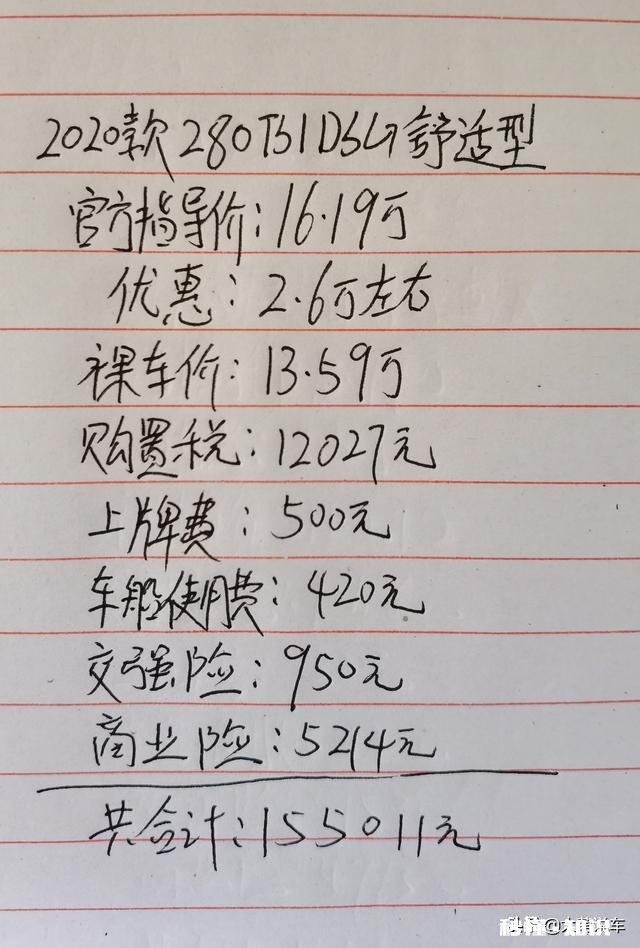 2020款 280TSI DSG 舒适型
官方指导价：16.19万
优惠：2.6万左右
裸车价：13.59万
购置税：12027元
上牌费：500元
车船使用费：420元
交强险：950元
商业险：5214元
共合计：155011元